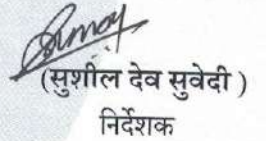 (सुशील देव सुवेदी )
निर्देशक